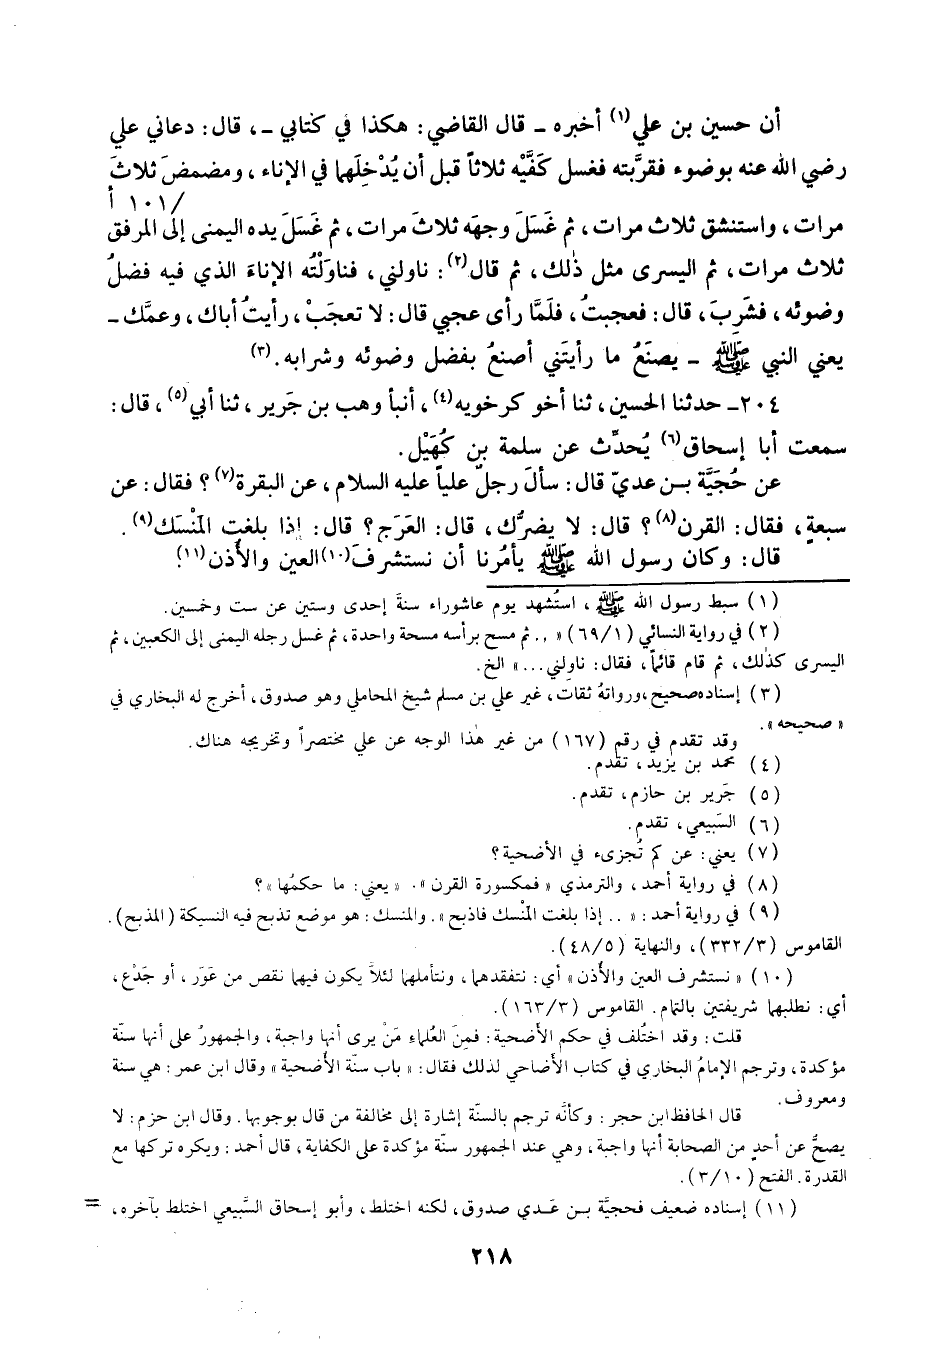 أن حسين بن علي(١) أخبره ـ قال القاضي: هكذا في كتابي ـ، قال: دعاني علي
رضي الله عنه بوضوء فقرَّبته فغسل كَفَّيْه ثلاثاً قبل أن يُدْخِلَهما في الإناء، ومضمضَ ثلاثَ
/١٠١ أ
مرات، واستنشق ثلاث مرات، ثم غَسَلَ وجهَه ثلاثَ مرات، ثم غَسَلَ يده اليمنى إلى المرفق
ثلاث مرات، ثم اليسرى مثل ذٰلك، ثم قال(٢): ناولني، فناوَلْتُه الإناءَ الذي فيه فضلُ
وضوئه، فشَرِبَ، قال: فعجبتُ، فلَمَّا رأى عجبي قال: لا تعجَبْ، رأيتُ أباك، وعمَّك ـ
يعني النبي ﷺ ـ يصنَعُ ما رأيتَني أصنعُ بفضل وضوئه وشرابه.(٣)
٢٠٤ـ حدثنا الحسين، ثنا أخو كرخويه(٤)، أنبأ وهب بن جَرير، ثنا أبي(٥)، قال:
سمعت أبا إسحاق(٦) يُحدِّث عن سلمة بن كُهَيْل.
عن حُجَيَّة بـن عديّ قال: سألَ رجلٌ علياً عليه السلام، عن البقرة(٧)؟ فقال: عن
سبعةٍ، فقال: القرن(٨)؟ قال: لا يضرُّك، قال: العَرَج؟ قال: إذا بلغت المَنْسَك(٩).
قال: وكان رسول الله ﷺ يأمُرنا أن نستشرفَ(١٠)العين والأذن(١١)!
(١) سبط رسول الله ﷺ، استُشهد يوم عاشوراء سنةَ إحدى وستين عن ست وخمسين.
(٢) في رواية النسائي (٦٩/١) « .. ثم مسح برأسه مسحة واحدة، ثم غسل رجله اليمنى إلى الكعبين، ثم
اليسرى كذٰلك، ثم قام قائماً، فقال: ناولني...» الخ.
(٣) إسناده صحيح، ورواتهُ ثقات، غير علي بن مسلم شيخ المحاملي وهو صدوق، أخرج له البخاري في
« صحيحه ».
وقد تقدم في رقم (١٦٧) من غير هٰذا الوجه عن علي مختصراً وتخريجه هناك.
(٤) محمد بن يزيد، تقدم.
(٥) جَرير بن حازم، تقدم.
(٦) السَّبيعي، تقدم.
(٧) يعني: عن كم تُجزىء في الأضحية؟
(٨) في رواية أحمد، والترمذي « فمكسورة القرن ». « يعني: ما حكمُها »؟
(٩) في رواية أحمد: « .. إذا بلغت المَنْسك فاذبح ». والمنسك: هو موضع تذبح فيه النسيكة (المذبح).
القاموس (٣٣٢/٣)، والنهاية (٤٨/٥).
(١٠) « نستشرف العين والأذن » أي: نتفقدهما، ونتأملهما لئلاّ يكون فيهما نقص من عَوَر، أو جَدْع،
أي: نطلبهما شريفتين بالتمام. القاموس (١٦٣/٣).
قلت: وقد اختُلف في حكم الأضحية: فمِنَ العُلماءِ مَنْ يرى أنها واجبة، والجمهورُ على أنها سنّة
مؤكدة، وترجم الإمامُ البخاري في كتاب الأضاحي لذلك فقال: « باب سنّة الأضحية » وقال ابن عمر: هي سنة
ومعروف.
قال الحافظ ابن حجر: وكأنّه ترجم بالسنّة إشارة إلى مخالفة من قال بوجوبها. وقال ابن حزم: لا
يصحُّ عن أحدٍ من الصحابة أنها واجبة، وهي عند الجمهور سنّة مؤكدة على الكفاية، قال أحمد: ويكره تركها مع
القدرة. الفتح (٣/١٠).
(١١) إسناده ضعيف فحجيَّة بـن عَـدي صدوق، لكنه اختلط، وأبو إسحاق السَّبيعي اختلط بآخره، =
٢١٨